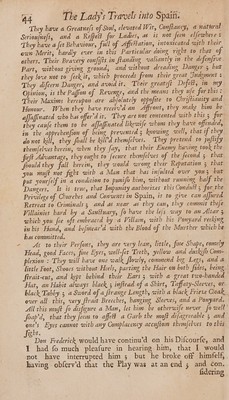 44 The Lady's Travels into Spain.
They have a Greatness of Soul, elevated Wit, Constancy, a natural
Seriousness, and a Respect for Ladies, as is not seen elsewhere:
They have a set Behaviour, full of Affectation, intoxicated with their
own Merit, hardly ever in this Particular doing right to that of
others. Their Bravery consists in standing valiantly in the defensive
Part, without giving ground, and without dreading Danger; but
they love not to seek it, which proceeds from their great Judgment:
They discern Danger, and avoid it. Their greatest Defect, in my
Opinion, is the Passion of Revenge, and the means they use for this:
Their Maxims hereupon are absolutely opposite to Christianity and
Honour. When they have receiv'd an Affront, they make him be
assassinated who has offer'd it. They are not contented with this; for
they cause them to be assassinated likewise whom they have offended,
in the apprehension of being prevented; knowing well, that if they
do not kill, they shall be kill'd themselves. They pretend to justify
themselves herein, when they say, that their Enemy having took the
first Advantage, they ought to secure themselves of the second; that
should they fail herein, they would wrong their Reputation; that
you must not fight with a Man that has insulted over you; but
put yourself in a condition to punish him, without running half the
Danger. It is true, that Impunity authorizes this Conduct; for the
Privilege of Churches and Convents in Spain, is to give an assured
Retreat to Criminals; and as near as they can, they commit these
Villainies hard by a Sanctuary, to have the less way to an Altar;
which you see oft embraced by a Villain, with his Ponyard reeking
in his Hand, and besmear'd with the Blood of the Murther which he
has committed.
As to their Persons, they are very lean, little, fine Shape, comely
Head, good Faces, fine Eyes, well-set Teeth, yellow and duskish Com-
plexion: They will have one walk slowly, commend big Legs, and a
little Foot, Shooes without Heels, parting the Hair on both sides, being
strait-cut, and kept behind their Ears; with a great two-handed
Hat, an Habit always black; instead of a Shirt, Taffety-Sleeves, or
black Tabby; a Sword of a strange Length, with a black Frieze Cloak
over all this, very strait Breeches, hanging Sleeves, and a Ponyard.
All this must so disfigure a Man, let him be otherwise never so well
shap'd, that they seem to affect a Garb the most disagreeable; and
one's Eyes cannot with any Complacency accustom themselves to this
sight.
Don Frederick would have continu'd on his Discourse, and
I had so much pleasure in hearing him, that I would
not have interrupted him; but he broke off himself,
having observ'd that the Play was at an end; and con-
sidering